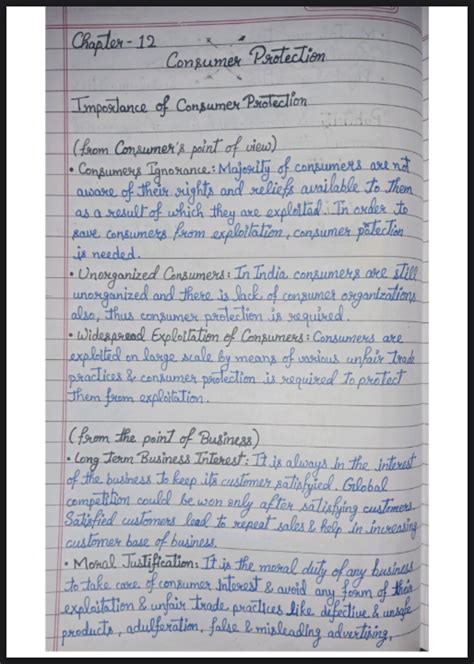 Chapter - 12
Consumer Protection
Importance of Consumer Protection
(from Consumer's point of view)
• Consumers Ignorance: Majority of consumers are not
aware of their rights and reliefs available to them
as a result of which they are exploited. In order to
save consumers from exploitation, consumer potection
is needed.
• Unorganized Consumers: In India consumers are still
unorganized and there is lack of consumer organizations
also, thus consumer protection is required.
• Widespread Exploitation of Consumers: Consumers are
exploited on large scale by means of various unfair trade
practices & consumer protection is required to protect
them from exploitation.
(from the point of Business)
• Long Term Business Interest: It is always in the interest
of the business to keep its customer satisfyied. Global
competition could be won only after satisfying customers.
Satisfied customers lead to repeat sales & help in increasing
customer base of business.
• Moral Justification: It is the moral duty of any business
to take care of consumer interest & avoid any form of their
exploitation & unfair trade practices like defective & unsafe
products, adulteration, false & misleading advertising,